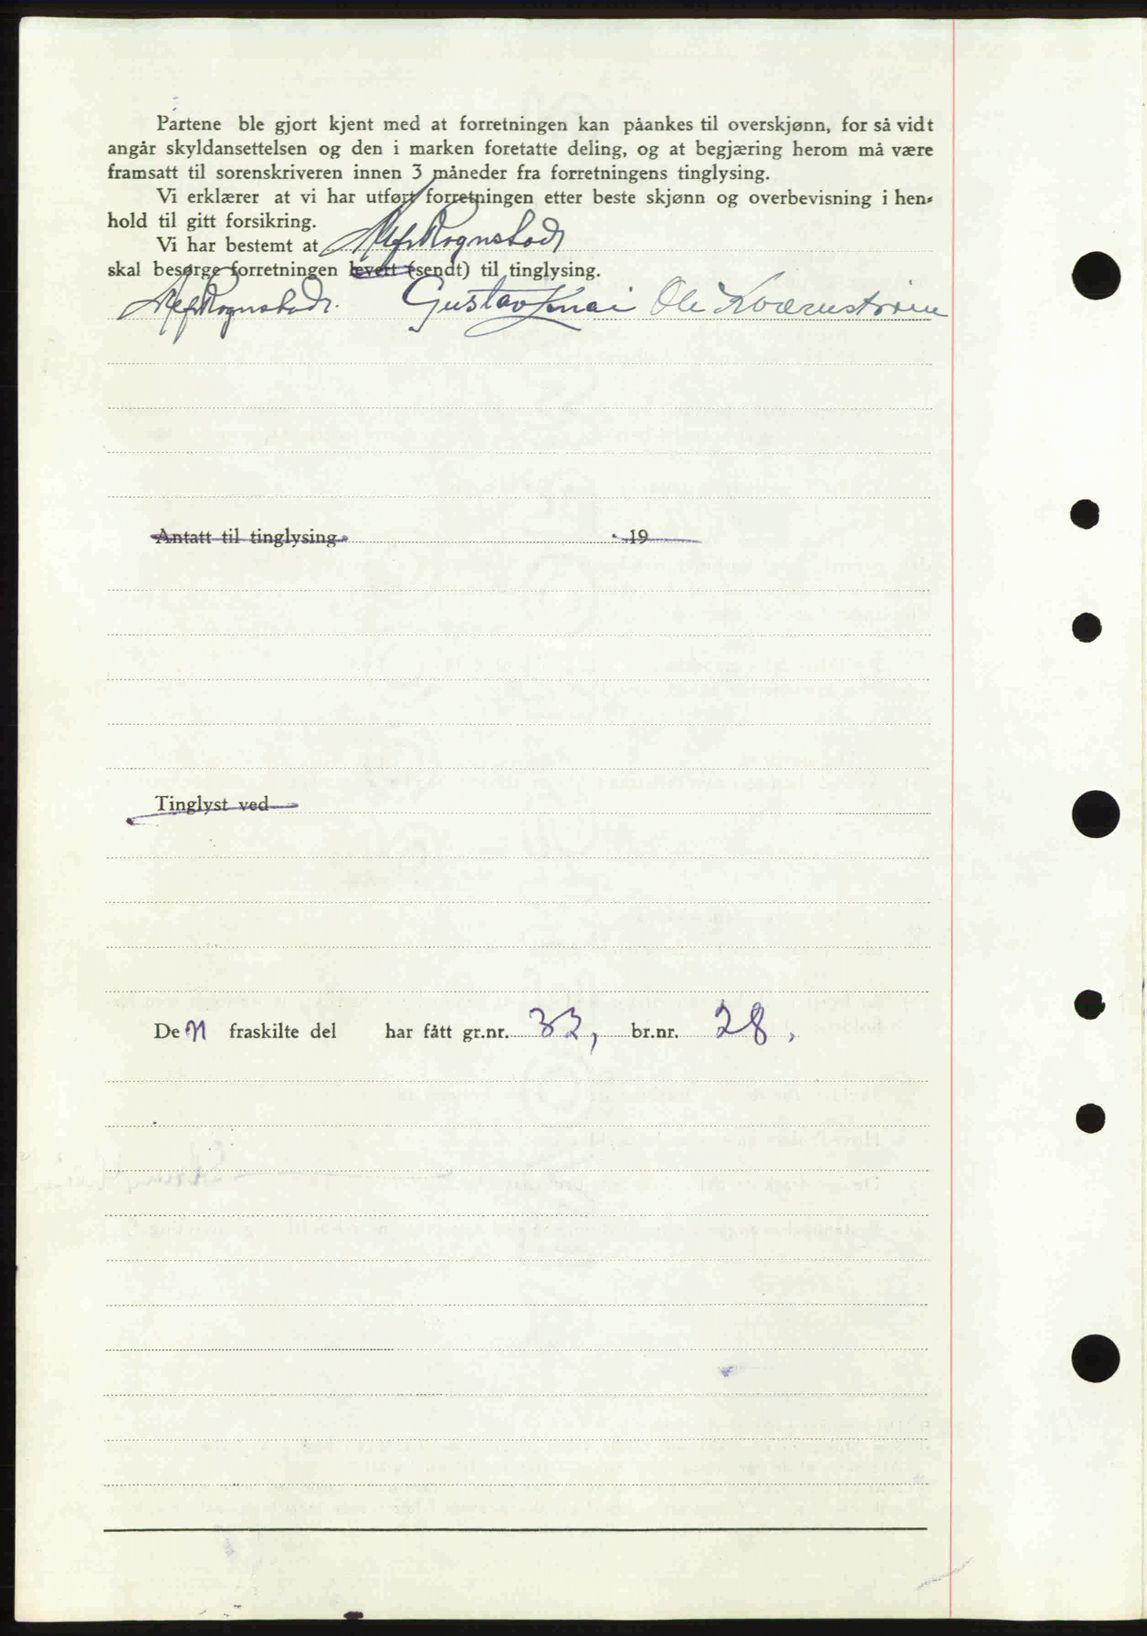 Partene ble gjort kjent med at forretningen kan påankes til overskjønn, for så vidt
angår skyldansettelsen og den i marken foretatte deling, og at begjæring herom må være
framsatt til sorenskriveren innen 3 måneder fra forretningens tinglysing.
Vi erklærer at vi har utført forretningen etter beste skjønn og overbevisning i hen-
hold til gitt forsikring.
Vi har bestemt at Alf Rognstad
skal besørge forretningen levert (sendt) til tinglysing.
Alf Rognstad. Gustav Knai Ole Kværnstrøm
Antatt til tinglysing 19
Tinglyst ved
Den fraskilte del har fått gr.nr. 33, br.nr. 28.